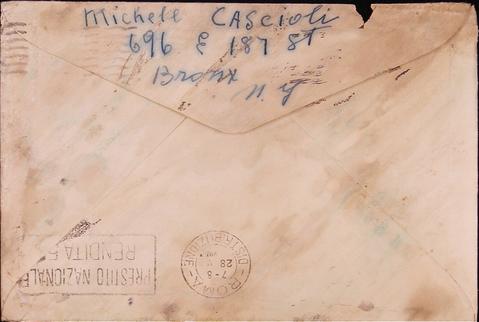 Michele CASCIOLI
696 E 187 St
Bronx
N.Y
PRESTITO NAZIONALE
RENDITA 5
ROMA
DISTRIBUZIONE
7-8
28